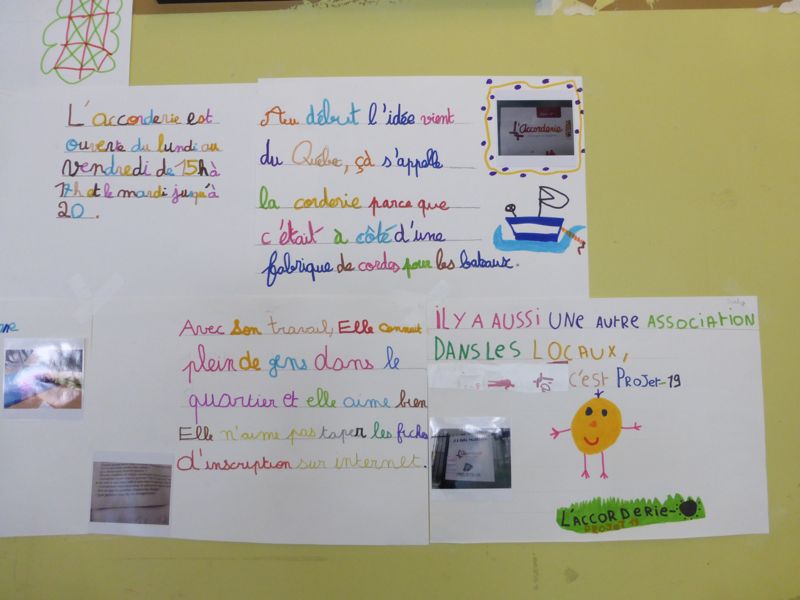 L'accorderie est
ouverte du lundi au
vendredi de 15h à
17h et le mardi jusqu'à
20.
Au début l'idée vient
du Québec, çà s'appelle
la corderie parce que
c'était à côté d'une
fabrique de cordes pour les bateaux.
L'Accorderie
Avec son travail, Elle connait
plein de gens dans le
quartier et elle aime bien
Elle n'aime pas taper les fiches
d'inscription sur internet.
IL Y A AUSSI UNE AUTRE ASSOCIATION
DANS LES LOCAUX,
c'est ProJet-19
L'ACCORDERIE-
PROJET 19